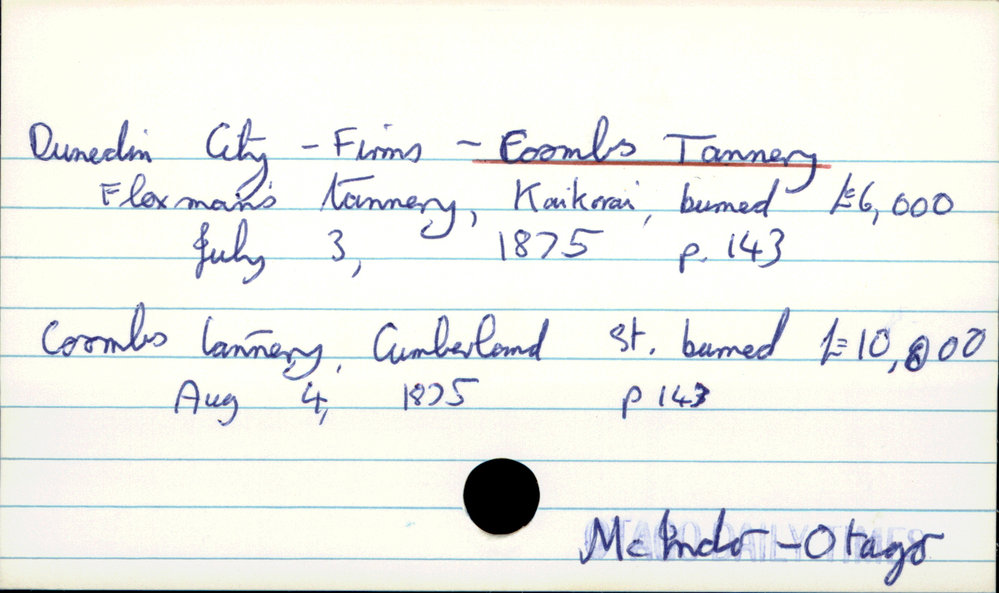 Dunedin City - Firms - Coombs Tannery
Flaxman's tannery, Kaikorai, burned £6,000
July 3, 1875 p. 143
Coombs tannery, Cumberland St. burned £10,000
Aug 4, 1875 p 143
McIndo - Otago